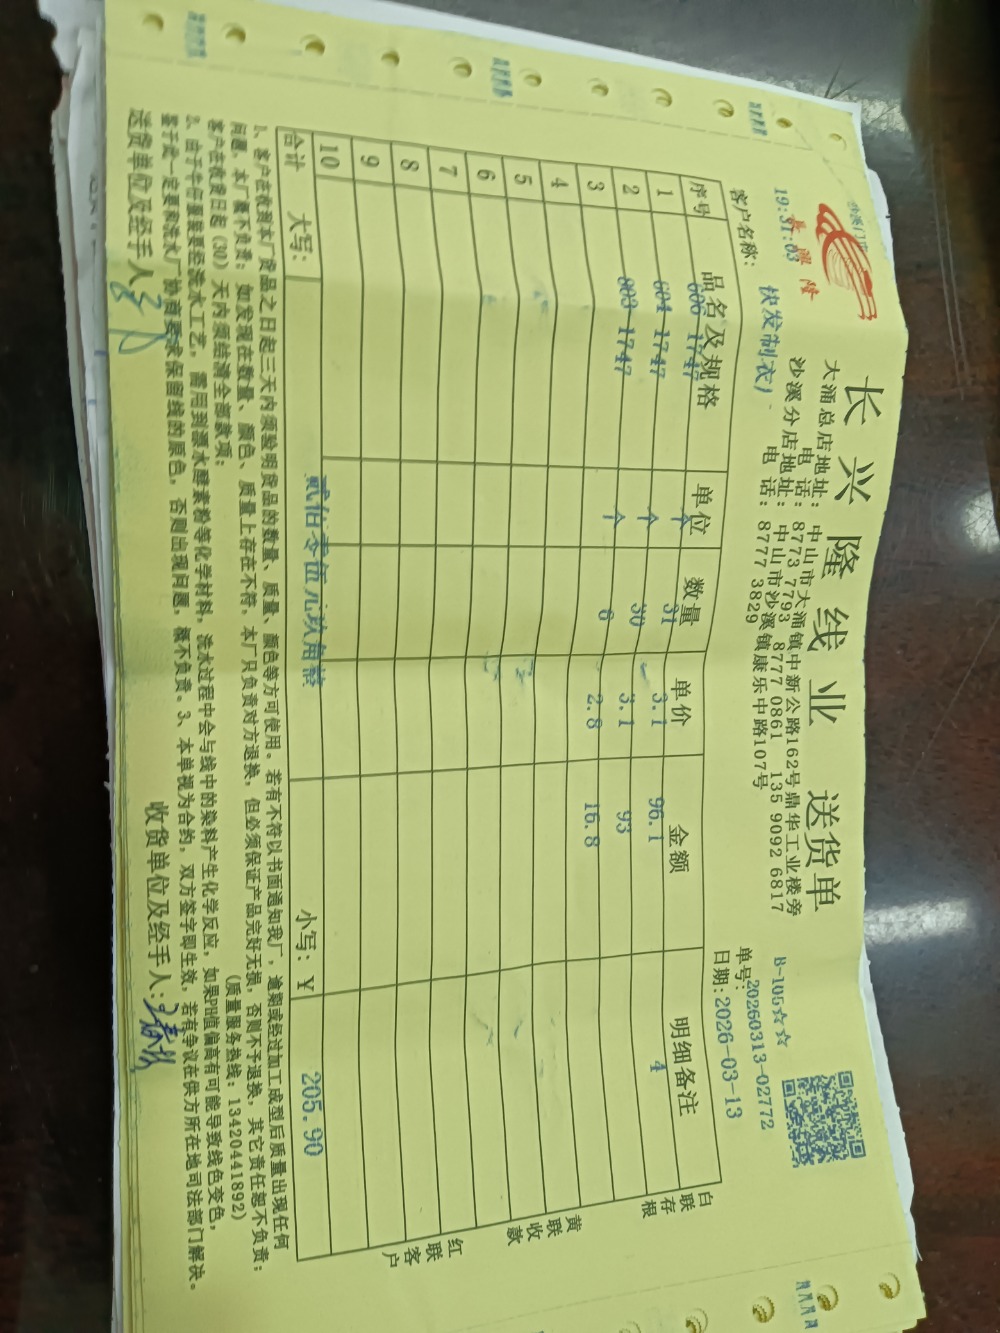 长兴隆线业 送货单
沙溪门市
長興隆
19:31:03
大涌总店地址:中山市大涌镇中新公路162号鼎华工业楼旁
电话:8773 7793 8777 0861 135 9092 6817
沙溪分店地址:中山市沙溪镇康乐中路107号
电话:8777 3829
B-105☆☆
单号:20260313-02772
客户名称: 快发制衣)
日期:2026-03-13
序号 品名及规格 单位 数量 单价 金额 明细备注
1 606 1747 个 31 3.1 96.1 4
2 604 1747 个 30 3.1 93
3 803 1747 个 6 2.8 16.8
4
5
6
7
8
9
10
合计 大写: 贰佰零伍元玖角整 小写:¥ 205.90
白联存根
黄联收款
红联客户
1、客户在收到本厂货品之日起三天内须验明货品的数量、质量、颜色等方可使用。若有不符以书面通知我厂,逾期或经过加工成型后质量出现任何
问题,本厂概不负责;如发现在数量、颜色、质量上存在不符,本厂只负责对方退换,但必须保证产品完好无损,否则不予退换,其它责任恕不负责;
客户在收货日起(30)天内须结清全部款项; (质量服务热线:13420441892)
2、由于牛仔服装要经洗水工艺,需用到漂水酵素粉等化学材料,洗水过程中会与线中的染料产生化学反应,如果PH值偏高有可能导致线色变色,
客于此一定要和洗水厂协商要求保留线的原色,否则出现问题,概不负责。3、本单视为合约,双方签字即生效,若有争议在供方所在地司法部门解决。
送货单位及经手人:
收货单位及经手人: